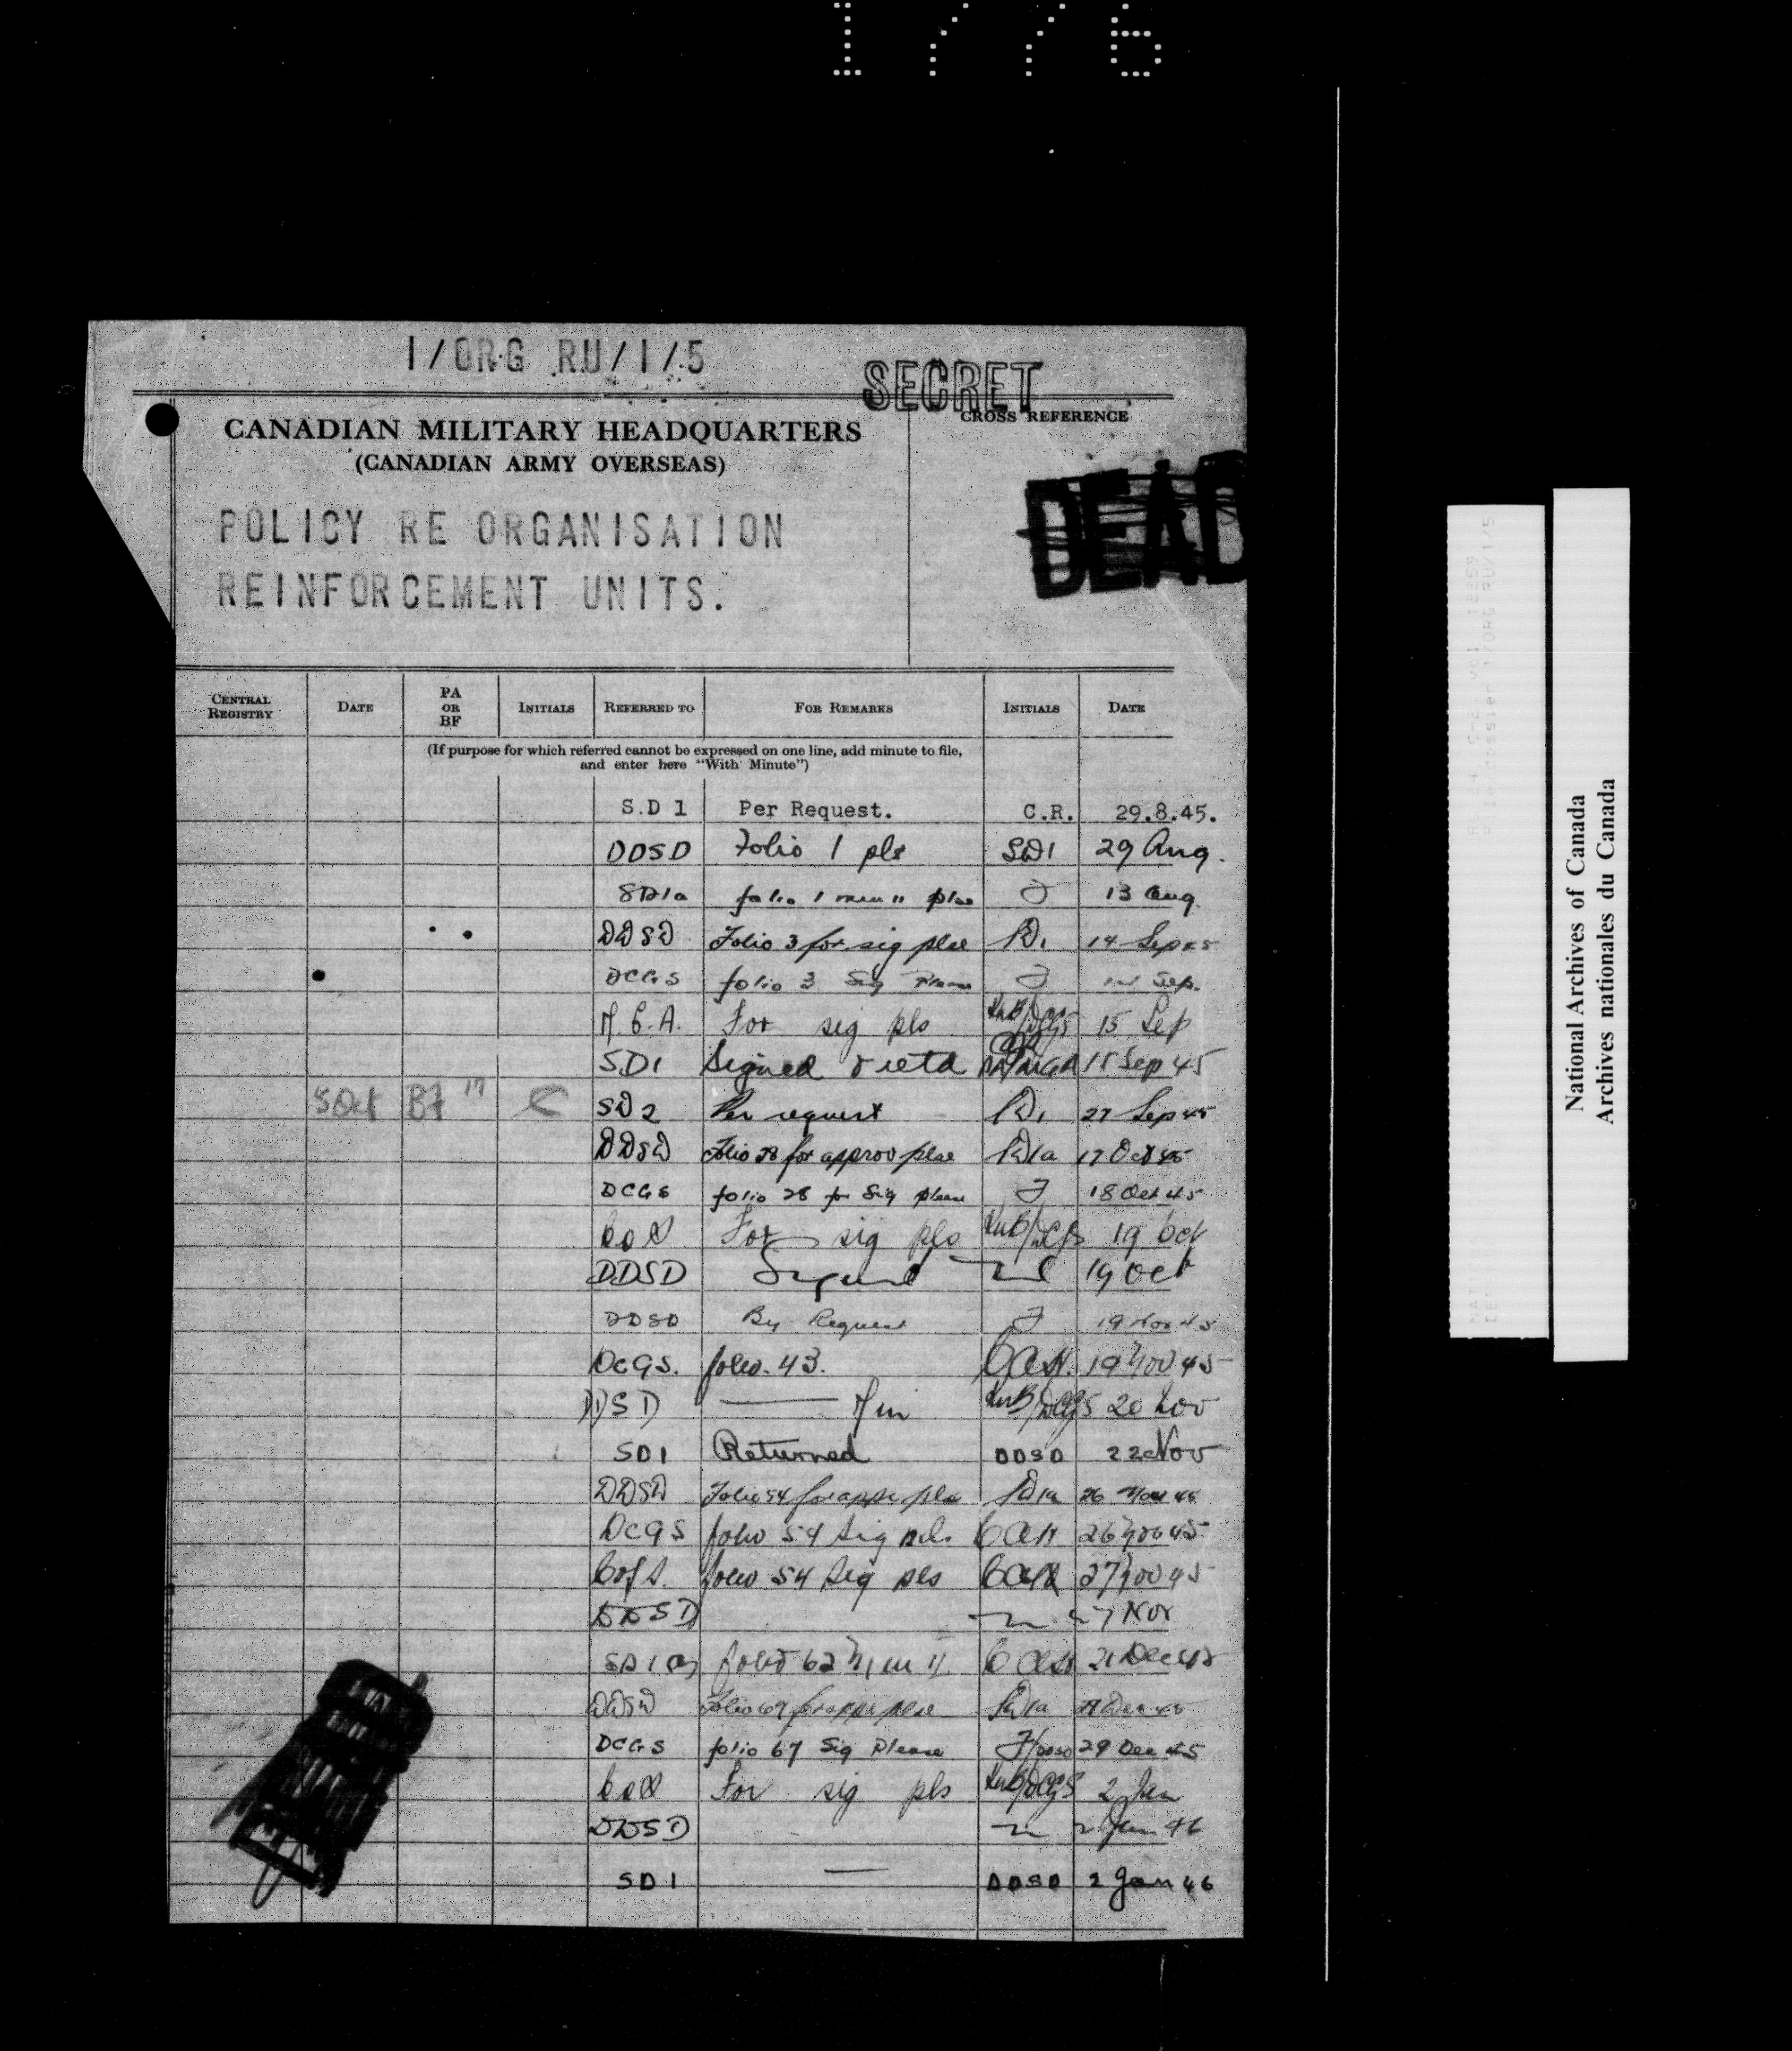 1776
1/ORG RU/1/5
SECRET
CANADIAN MILITARY HEADQUARTERS
(CANADIAN ARMY OVERSEAS)
CROSS REFERENCE
DEAD
POLICY RE ORGANISATION
REINFORCEMENT UNITS.
CENTRAL REGISTRY DATE PA OR BF INITIALS REFERRED TO FOR REMARKS INITIALS DATE
(If purpose for which referred cannot be expressed on one line, add minute to file,
and enter here "With Minute")
S.D 1 Per Request. C.R. 29.8.45.
DDSD Folio 1 pls SD1 29 Aug.
SD1a folio 1 min 11 plse 13 Aug.
DDSD Folio 3 for sig plse SD1 14 Sep 45
DCGS folio 3 Sig Please Sep.
For sig pls 15 Sep
SD1 Signed & retd 15 Sep 45
5 Oct BF 17 SD2 Per request SD1 27 Sep 45
DDSD Folio 28 for approv plse SD1a 17 Oct 45
DCGS folio 28 for Sig please 18 Oct 45
CoS For sig pls 19 Oct
DDSD Signed 19 Oct
DDSD By Request 19 Nov 45
DCGS. folio. 43. 19 Nov 45
DDSD Min 20 Nov
SD1 Returned DDSD 22 Nov
DDSD Folio 54 for appr plse SD1a 26 Nov 45
DCGS folio 54 Sig pls 26 Nov 45
C of S. folio 54 Sig pls 27 Nov 45
DDSD 27 Nov
SD1a folio 62 Min 11 21 Dec 45
DDSD Folio 67 for appr plse SD1a Dec 45
DCGS folio 67 Sig Please DDSD 29 Dec 45
CoS For sig pls 2 Jan
DDSD 2 Jan 46
SD1 DDSD 2 Jan 46
National Archives of Canada
Archives nationales du Canada